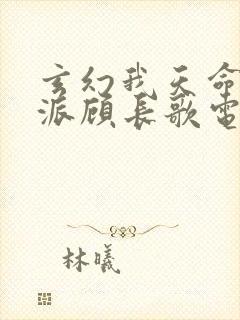 玄幻我天命
派顾长歌电
林曦